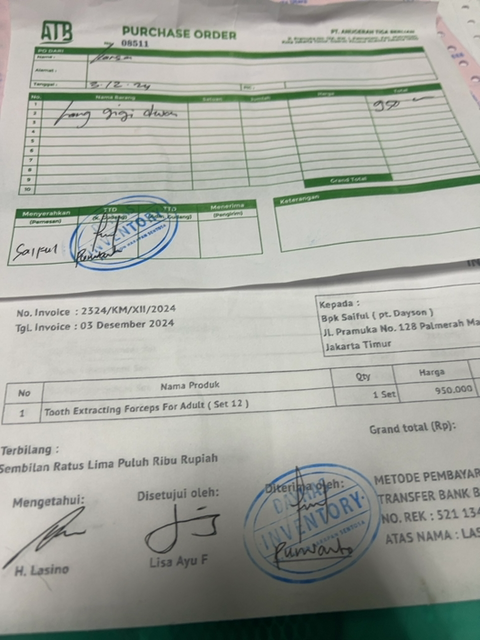 ATB
PURCHASE ORDER
PT. ANUGERAH TIGA
No 08511
PO DARI
Nama :
Alamat :
Tanggal : 3/12-24
PO :
No. Nama Barang Satuan Jumlah Harga Total
1 950
2 gigi dewasa
3
4
5
6
7
8
9
10
Grand Total
Menyerahkan TTD TTD Menerima
(Pemesan) (Pengirim)
Keterangan
INVENTORY
Saiful Purwanto
No. Invoice : 2324/KM/XII/2024
Tgl. Invoice : 03 Desember 2024
Kepada :
Bpk Saiful ( pt. Dayson )
JL. Pramuka No. 128 Palmerah
Jakarta Timur
No Nama Produk Qty Harga
1 Tooth Extracting Forceps For Adult ( Set 12 ) 1 Set 950,000
Grand total (Rp):
Terbilang :
Sembilan Ratus Lima Puluh Ribu Rupiah
Mengetahui: Disetujui oleh: Diterima oleh:
INVENTORY
H. Lasino Lisa Ayu F Purwanto
METODE PEMBAYAR
TRANSFER BANK B
NO. REK : 521 134
ATAS NAMA : LAS